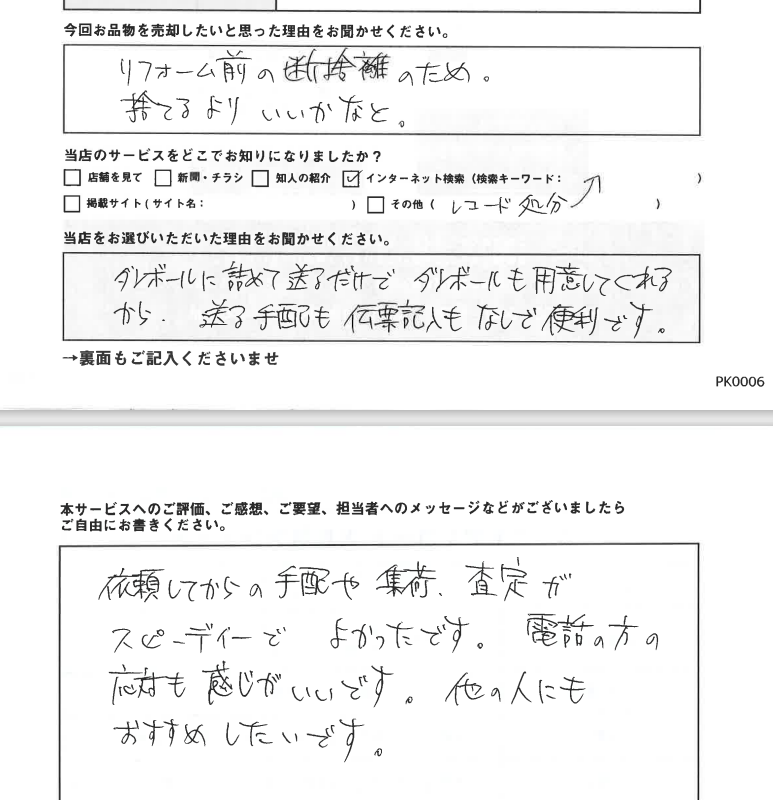 今回お品物を売却したいと思った理由をお聞かせください。
リフォーム前の断捨離のため。
捨てるよりいいかなと。
当店のサービスをどこでお知りになりましたか?
□ 店舗を見て □ 新聞・チラシ □ 知人の紹介 ☑ インターネット検索(検索キーワード: )
□ 掲載サイト(サイト名: ) □ その他( レコード処分 )
当店をお選びいただいた理由をお聞かせください。
ダンボールに詰めて送るだけで ダンボールも用意してくれる
から. 送る手配も伝票記入もなしで便利です。
→裏面もご記入くださいませ
PK0006
本サービスへのご評価、ご感想、ご要望、担当者へのメッセージなどがございましたら
ご自由にお書きください。
依頼してからの手配や集荷、査定が
スピーディーで よかったです。 電話の方の
応対も感じがいいです。他の人にも
おすすめしたいです。